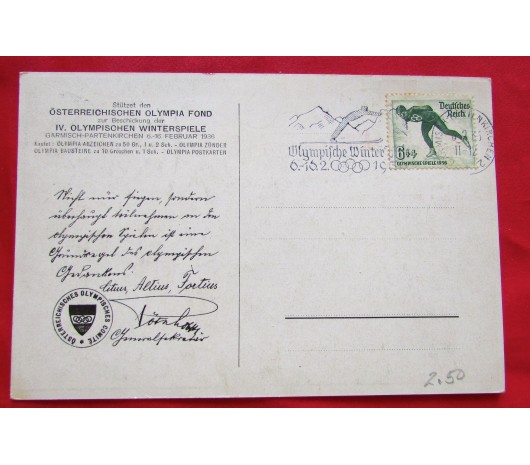 Stützet den
ÖSTERREICHISCHEN OLYMPIA FOND
zur Beschickung der
IV. OLYMPISCHEN WINTERSPIELE
GARMISCH-PARTENKIRCHEN 6.-16 FEBRUAR 1936
Kaufet: OLYMPIA-ABZEICHEN zu 50 Gr., 1 u. 2 Sch. - OLYMPIA ZÜNDER
OLYMPIA BAUSTEINE zu 10 Groschen u. 1 Sch. - OLYMPIA POSTKARTEN
Olympische Winter
6.-16.2.
Deutsches
Reich
6+4
OLYMPISCHE SPIELE 1936
Nicht nur siegen, sondern
überhaupt teilnehmen an die
olympischen Spielen ist eine
Grundregel des olympischen
Gedankens.
Citius, Altius, Fortius
Generalsekretär
ÖSTERREICHISCHES OLYMPISCHES COMITE
2.50